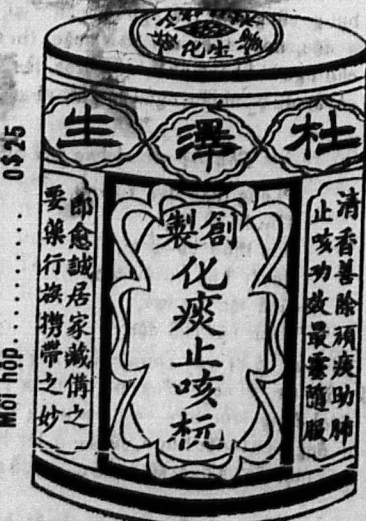 化生
杜澤生
創製
化痰止咳杬
清香善除頑痰助肺
止咳功效最靈隨服
即愈誠居家藏備之
要藥行旅攜帶之妙
Mỗi hộp.......... 0$25